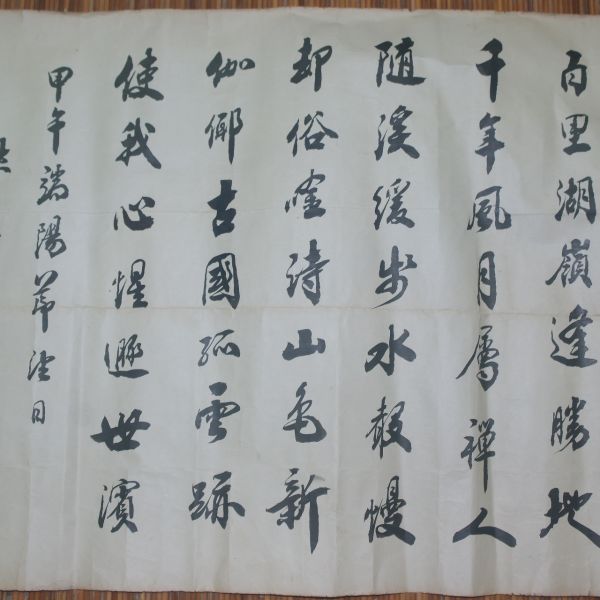 百里湖嶺逢勝地
千年風月屬禪人
隨溪緩步水聲慢
却俗吟詩山色新
伽倻古國孤雲跡
使我心惺遯世濱
甲午端陽節望日